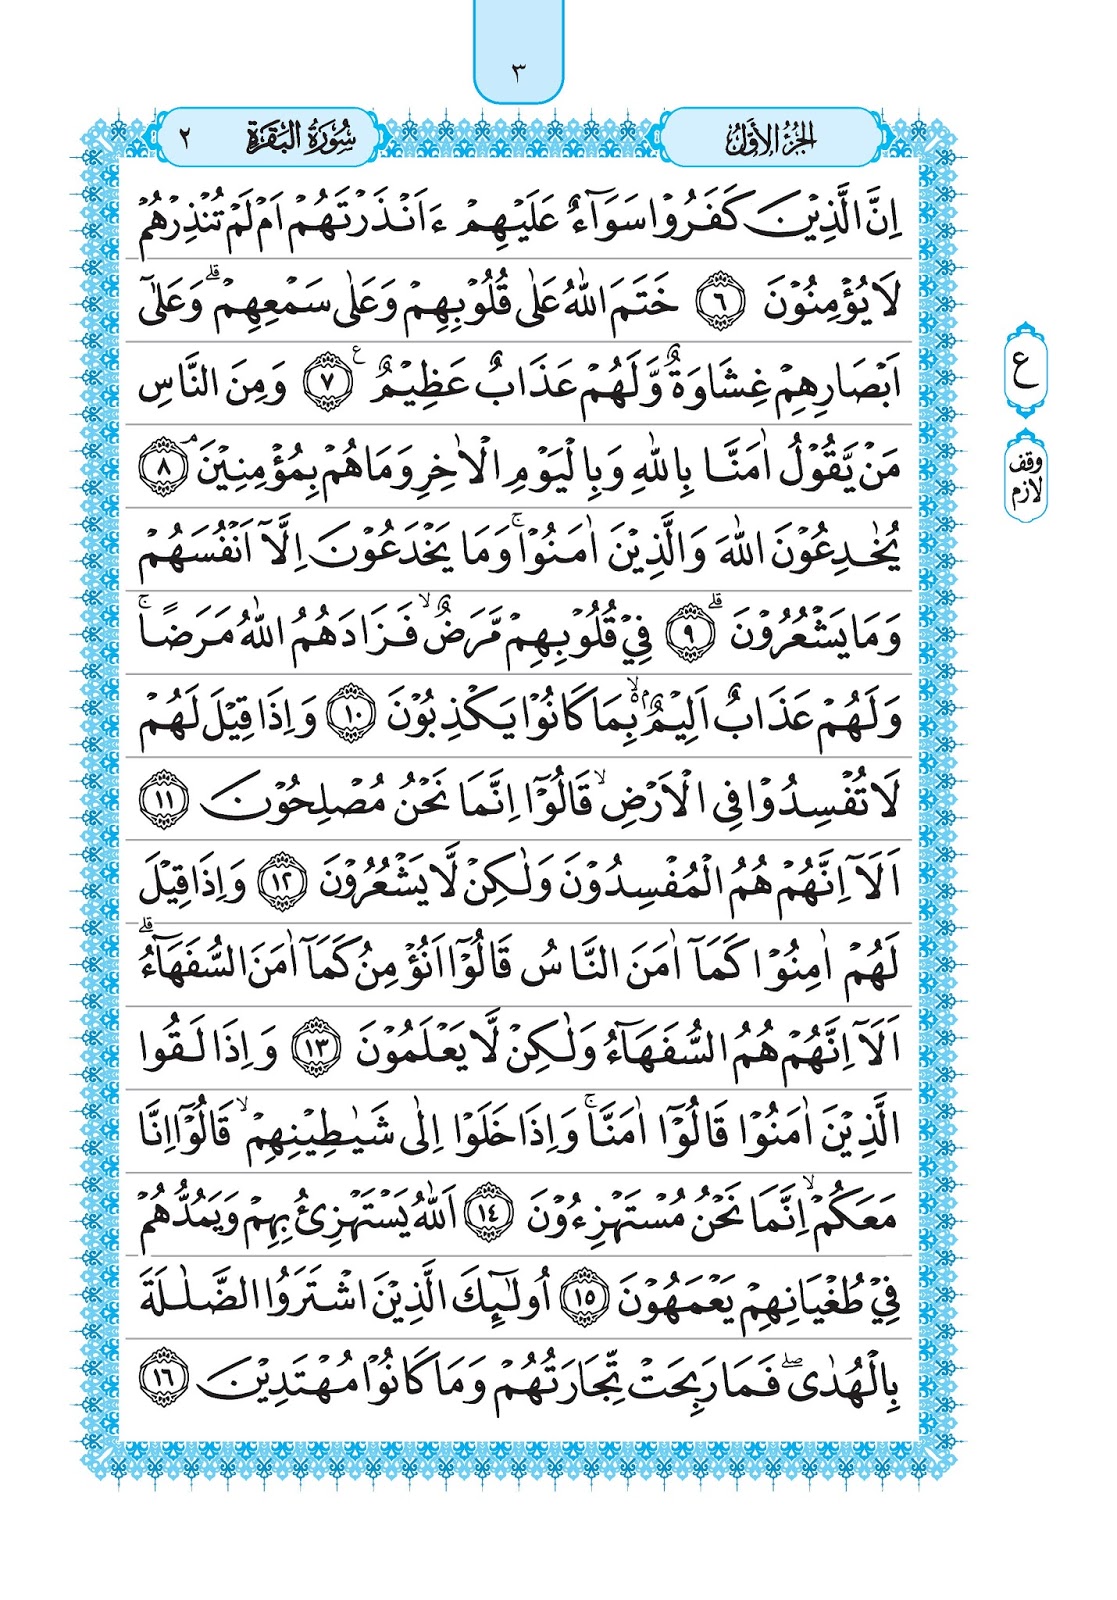 ٣
الجزء الأول
سورة البقرة ٢
اِنَّ الَّذِيْنَ كَفَرُوْا سَوَآءٌ عَلَيْهِمْ ءَاَنْذَرْتَهُمْ اَمْ لَمْ تُنْذِرْهُمْ
لَا يُؤْمِنُوْنَ ٦ خَتَمَ اللّٰهُ عَلٰى قُلُوْبِهِمْ وَعَلٰى سَمْعِهِمْ ۗ وَعَلٰٓى
اَبْصَارِهِمْ غِشَاوَةٌ وَّلَهُمْ عَذَابٌ عَظِيْمٌ ٧ ع وَمِنَ النَّاسِ
مَنْ يَّقُوْلُ اٰمَنَّا بِاللّٰهِ وَبِالْيَوْمِ الْاٰخِرِ وَمَا هُمْ بِمُؤْمِنِيْنَ ۘ ٨
يُخٰدِعُوْنَ اللّٰهَ وَالَّذِيْنَ اٰمَنُوْا ۚ وَمَا يَخْدَعُوْنَ اِلَّآ اَنْفُسَهُمْ
وَمَا يَشْعُرُوْنَ ۗ ٩ فِيْ قُلُوْبِهِمْ مَّرَضٌ ۙ فَزَادَهُمُ اللّٰهُ مَرَضًا ۚ
وَلَهُمْ عَذَابٌ اَلِيْمٌ ۢ ەۙ بِمَا كَانُوْا يَكْذِبُوْنَ ١٠ وَاِذَا قِيْلَ لَهُمْ
لَا تُفْسِدُوْا فِى الْاَرْضِ ۙ قَالُوْٓا اِنَّمَا نَحْنُ مُصْلِحُوْنَ ١١
اَلَآ اِنَّهُمْ هُمُ الْمُفْسِدُوْنَ وَلٰكِنْ لَّا يَشْعُرُوْنَ ١٢ وَاِذَا قِيْلَ
لَهُمْ اٰمِنُوْا كَمَآ اٰمَنَ النَّاسُ قَالُوْٓا اَنُؤْمِنُ كَمَآ اٰمَنَ السُّفَهَآءُ ۗ
اَلَآ اِنَّهُمْ هُمُ السُّفَهَآءُ وَلٰكِنْ لَّا يَعْلَمُوْنَ ١٣ وَاِذَا لَقُوا
الَّذِيْنَ اٰمَنُوْا قَالُوْٓا اٰمَنَّا ۚ وَاِذَا خَلَوْا اِلٰى شَيٰطِيْنِهِمْ ۙ قَالُوْٓا اِنَّا
مَعَكُمْ ۙ اِنَّمَا نَحْنُ مُسْتَهْزِءُوْنَ ١٤ اَللّٰهُ يَسْتَهْزِئُ بِهِمْ وَيَمُدُّهُمْ
فِيْ طُغْيَانِهِمْ يَعْمَهُوْنَ ١٥ اُولٰۤىِٕكَ الَّذِيْنَ اشْتَرَوُا الضَّلٰلَةَ
بِالْهُدٰى ۖ فَمَا رَبِحَتْ تِّجَارَتُهُمْ وَمَا كَانُوْا مُهْتَدِيْنَ ١٦
ع
وقف
لازم